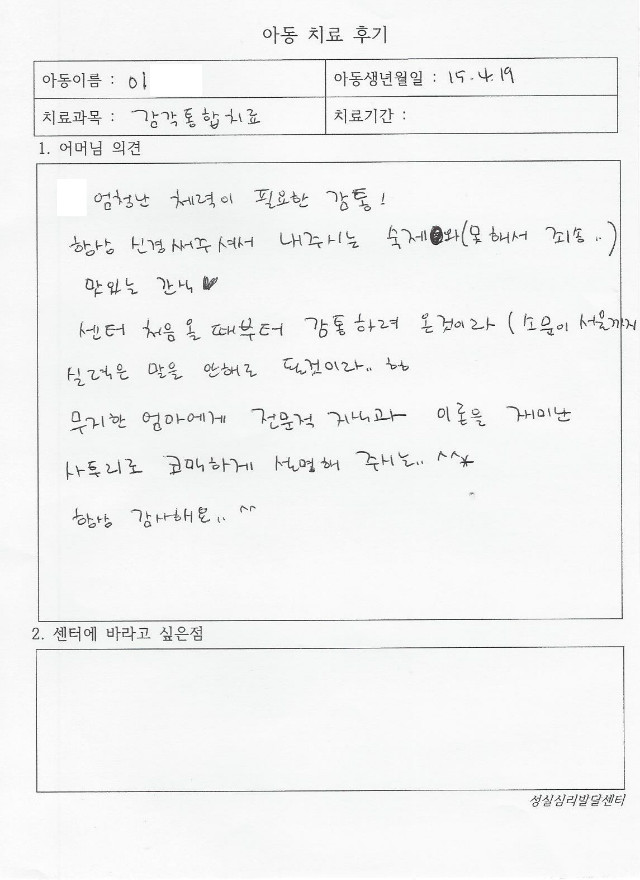 아동 치료 후기
아동이름 : 이
아동생년월일 : 15.4.19
치료과목 : 감각통합치료
치료기간 :
1. 어머님 의견
엄청난 체력이 필요한 감통!
항상 신경써주셔서 내주시는 숙제와(못해서 죄송..)
맛있는 간식♥
센터 처음올 때부터 감통하려 온것이라 (소문이 서울까지
실력은 말을 안해도 될것이라.. ㅎㅎ
무지한 엄마에게 전문적 지식과 이론을 재미난
사투리로 코믹하게 설명해 주시는.. ^^*
항상 감사해요.. ^^
2. 센터에 바라고 싶은점
성실심리발달센터